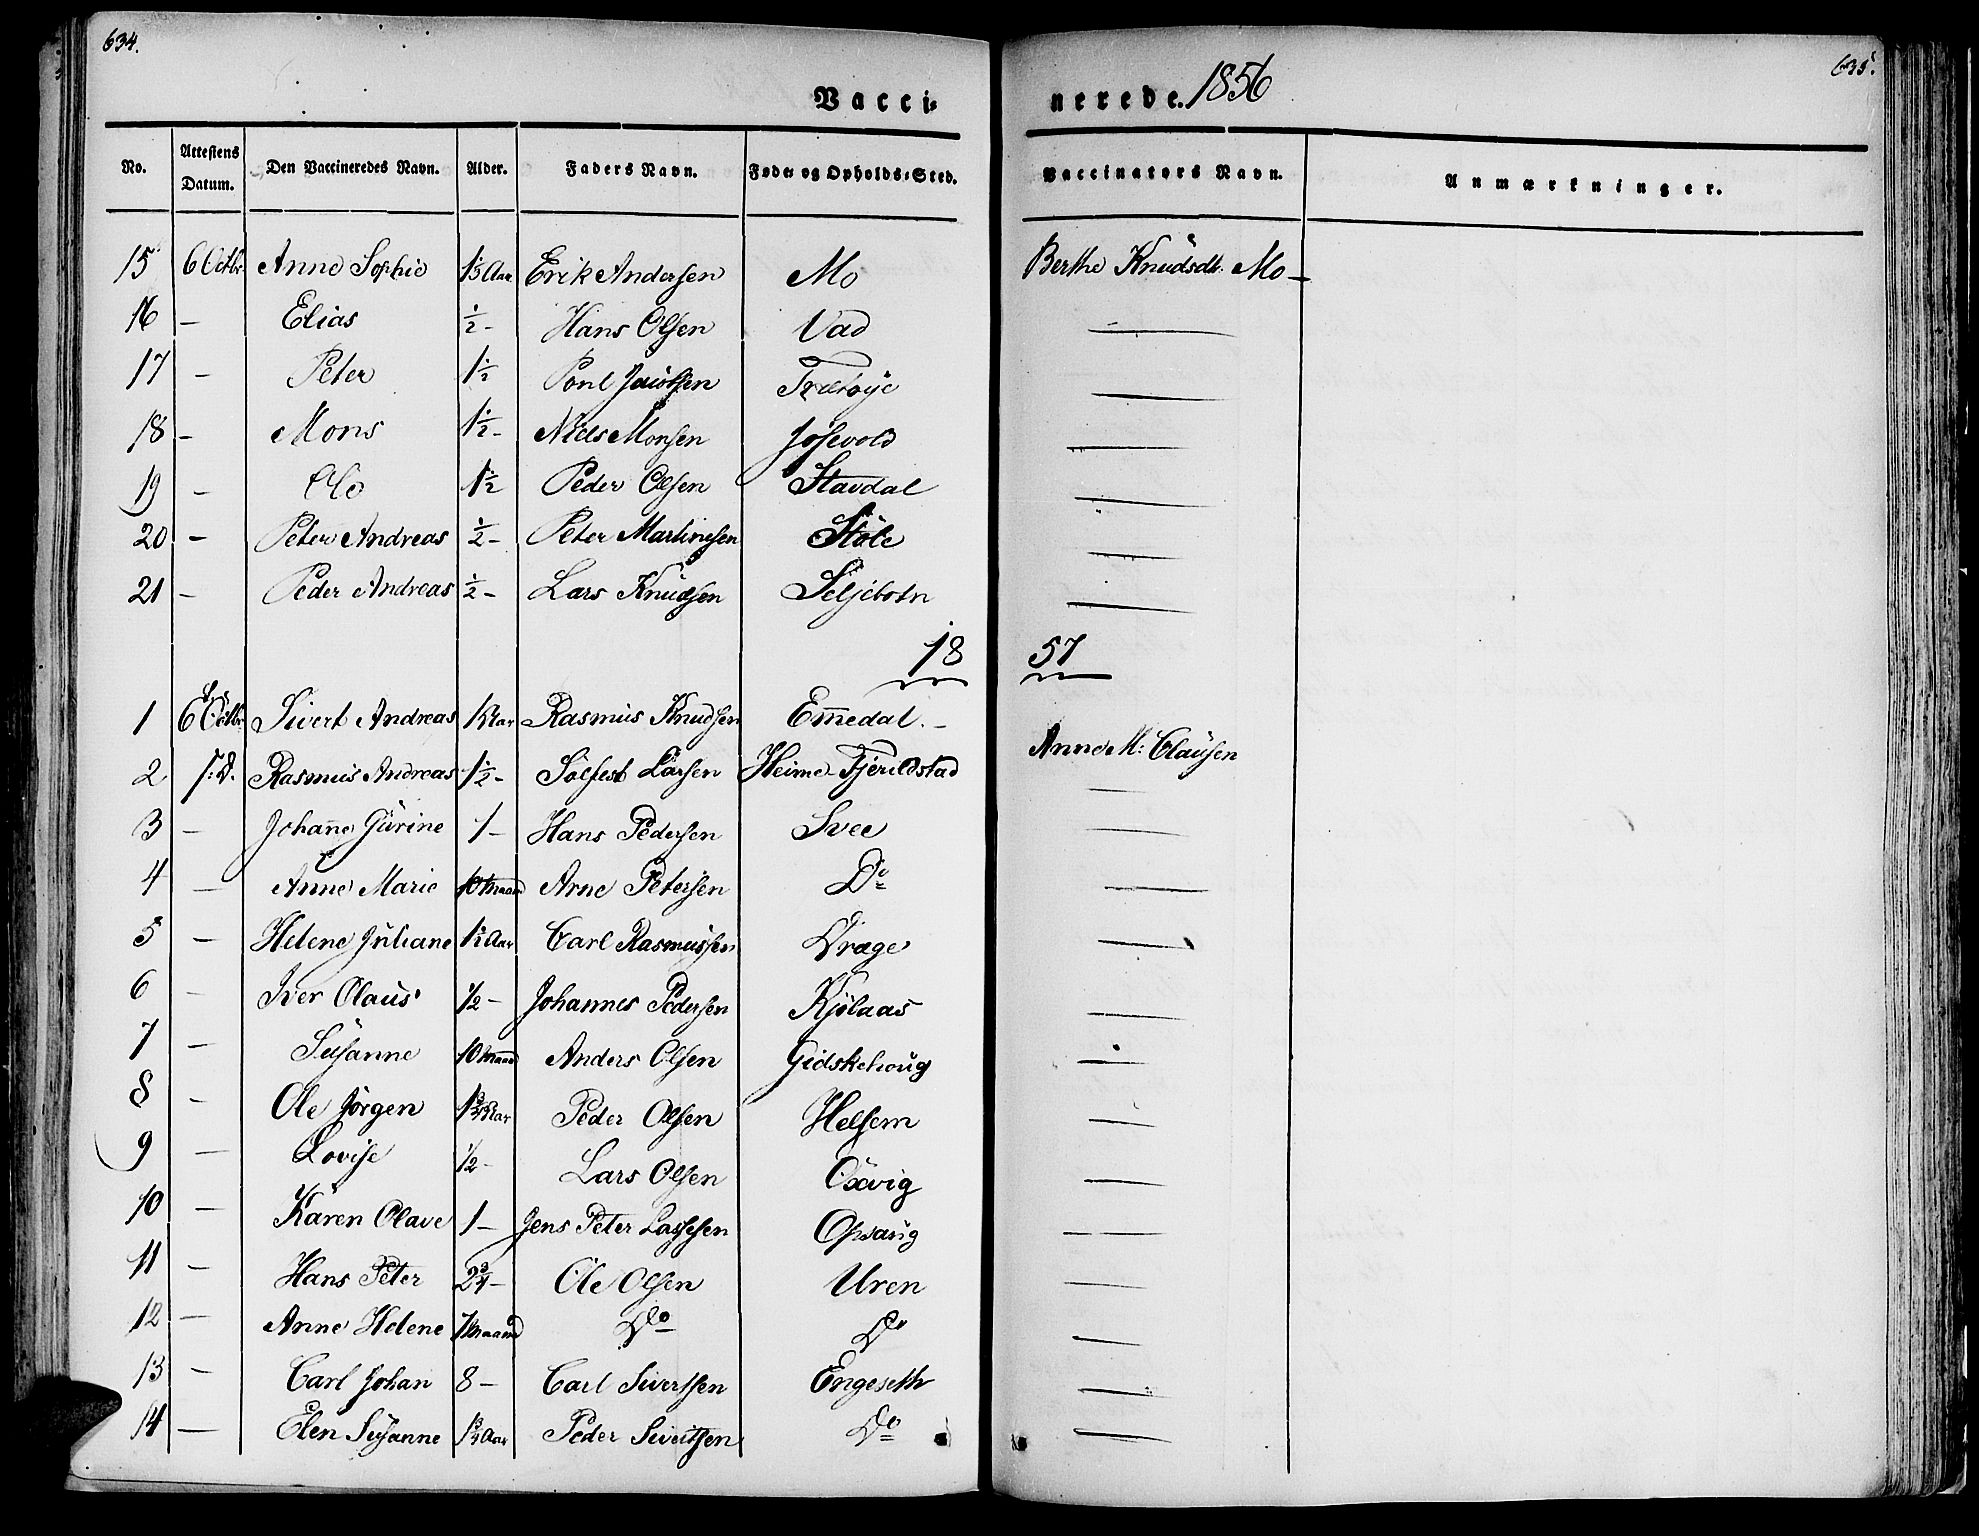 634.
635.
Vacci-
nerede. 1856
No. Attestens Datum. Den Vaccineredes Navn. Alder. Faders Navn. Føde- og Opholds-Sted. Vaccinators Navn. Anmærkninger.
15 6 Octbr. Anne Sophie Aar Erik Andersen Mo Berthe Knudsdt. Mo –
16 – Elias ½ – Hans Olsen Vad —
17 – Peter 1½ Poul —
18 – Mons 1½ – Niels Monsen Josevold —
19 – Ole 1½ Peder Olsen Stavdal —
20 – Peter Andreas ½ – Peter Martinesen Støle —
21 – Peder Andreas ½ – Lars Knudsen Seljebotn —
18 57
1 6 Octbr. Sivert Andreas Aar Rasmus Knudsen Emedal. – Anne M: Clausen
2 s: D. Rasmus Andreas 1½ – Solfest Larsen Heime Fjerildstad —
3 – Johane Gurine 1 – Hans Pedersen Svee —
4 – Anne Marie 10 Maaned Arne Petersen Do —
5 – Helene Juliane 1½ Aar Carl Rasmussen Drage —
6 – Iver Olaus ½ – Johannes Pedersen Kjølaas —
7 – Susanne 10 Maaned Anders Olsen Gidskehoug —
8 – Ole Jørgen 1¾ Aar Peder Olsen Helsem —
9 – Lovise ½ – Lars Olsen Oxvig —
10 – Karen Olave 1 – Jens Peter Lassesen Opsaug —
11 – Hans Peter 2¾ – Ole Olsen Uren —
12 – Anne Helene 7 Maaned Do Do —
13 – Carl Johan 8 – Carl Sivertsen Engeseth —
14 – Elen Susanne 1¾ Aar Peder Sivertsen Do —